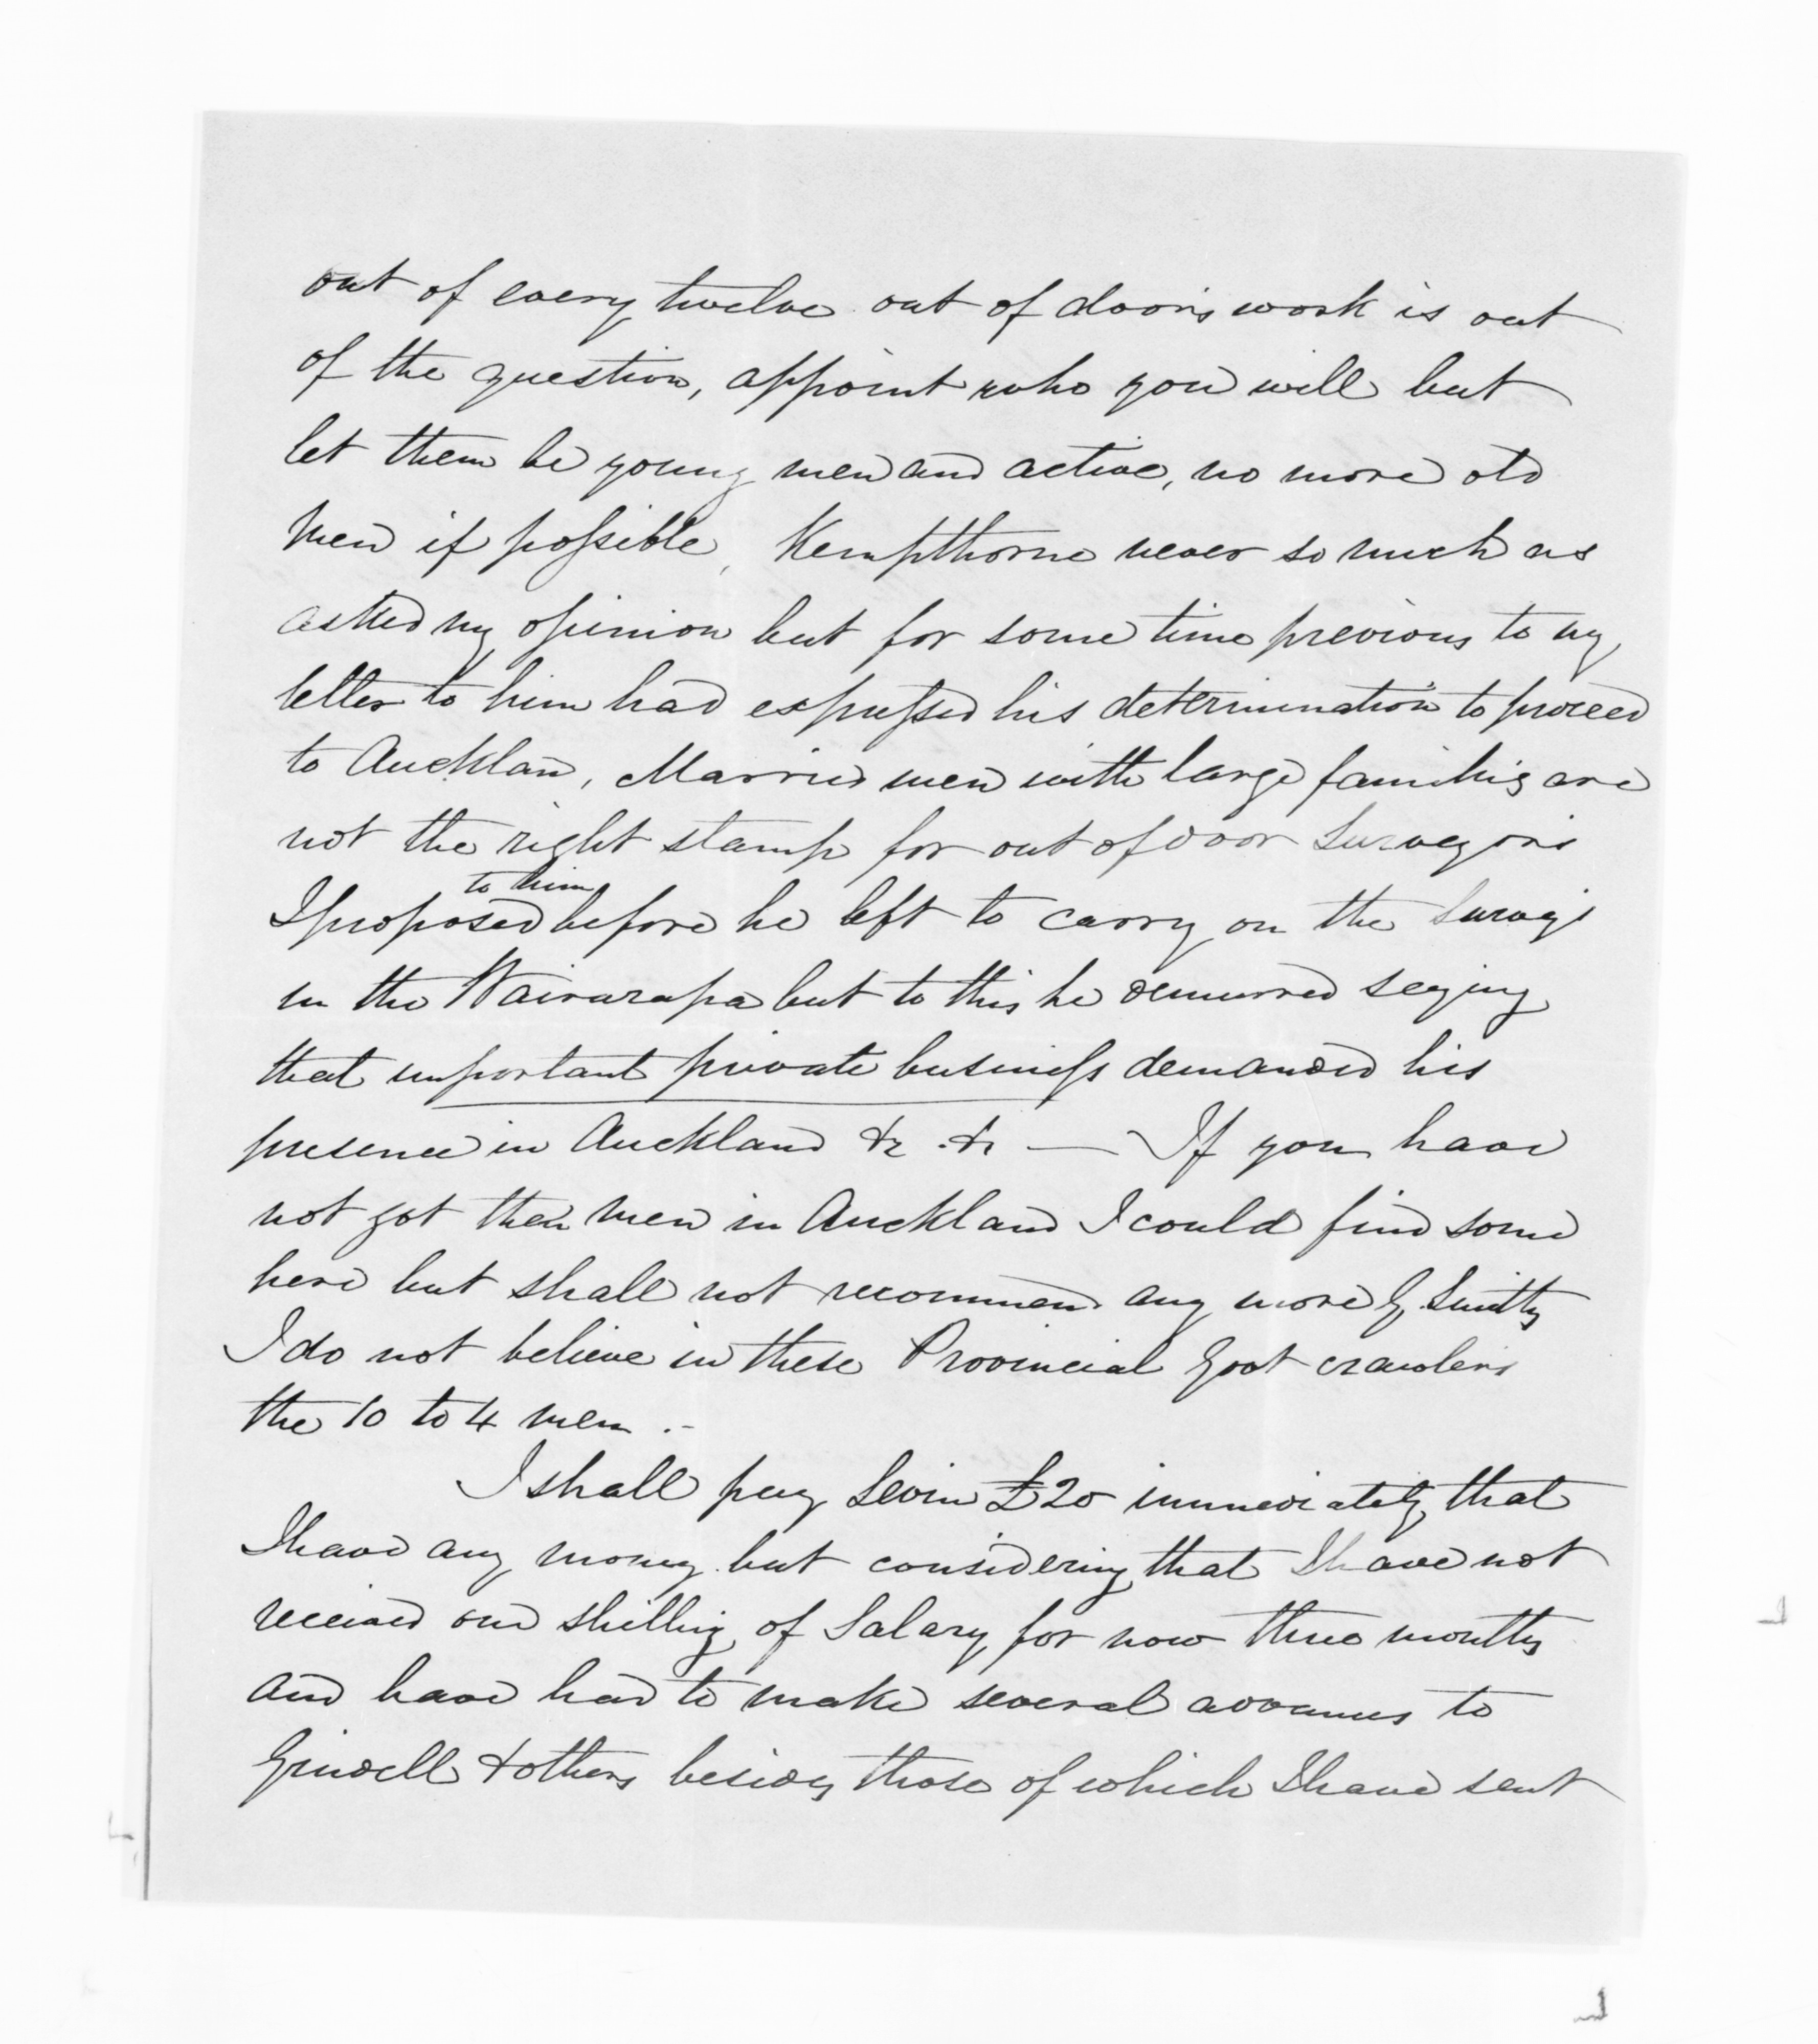 out of every twelve out of doors work is out
of the question, appoint who you will but
let them be young men and active, no more old
men if possible, Kempthorne never so much as
asked my opinion but for some time previous to my
letter to him had expressed his determination to proceed
to Auckland, Married men with large families are
not the right stamp for out of door Surveyors
to him
I proposed before he left to carry on the Surveys
in the Wairarapa but to this he demurred saying
that important private business demanded his
presence in Auckland &c &c — If you have
not got the men in Auckland I could find some
here but shall not recommend any more G. Smiths
I do not believe in these Provincial Govt crawlers
the 10 to 4 men .-
I shall pay Levin £20 immediately that
I have any money but considering that I have not
received one shilling of Salary for now three months
and have had to make several advances to
Grindell & others besides those of which I have sent